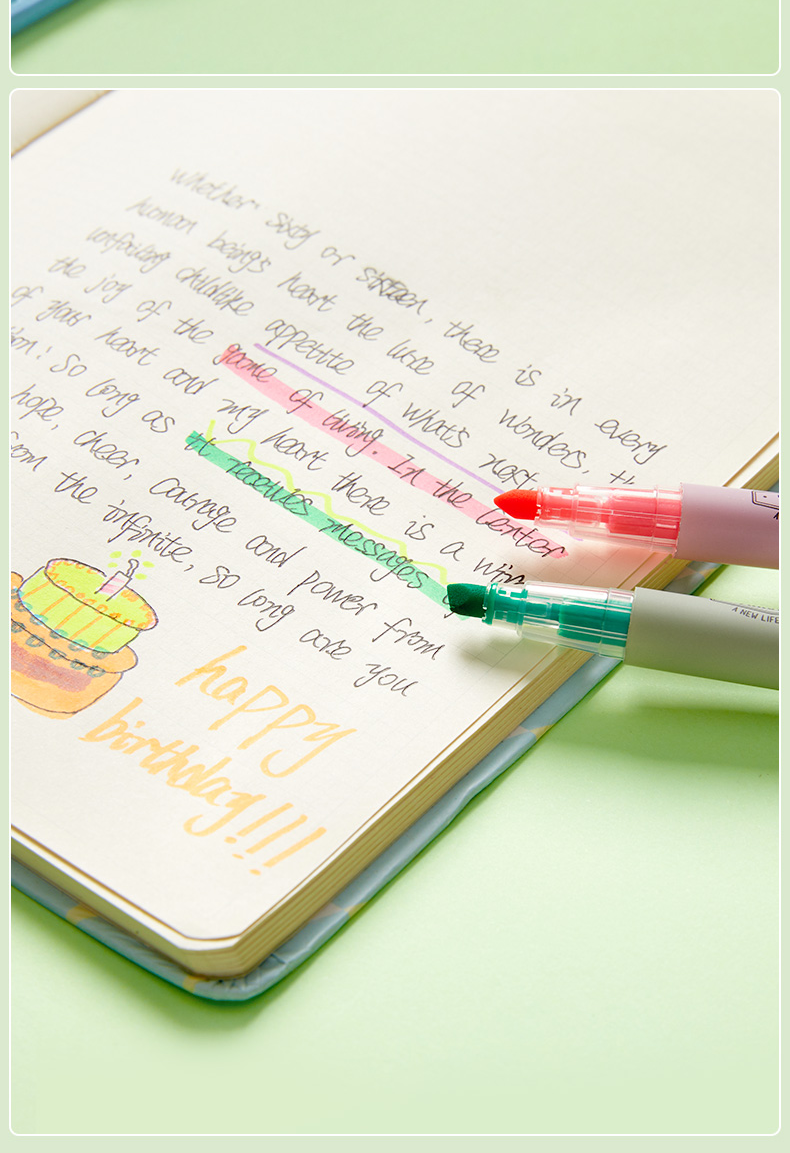 Whether sixty or sixteen, there is in every
human being's heart the lure of wonders,
unfailing childlike appetite of what's next
the joy of the game of living. In the center
of your heart and my heart there is a
So long as it receives messages
hope, cheer, courage and power from
from the infinite, so long are you
happy
birthday!!!
A NEW LIFE